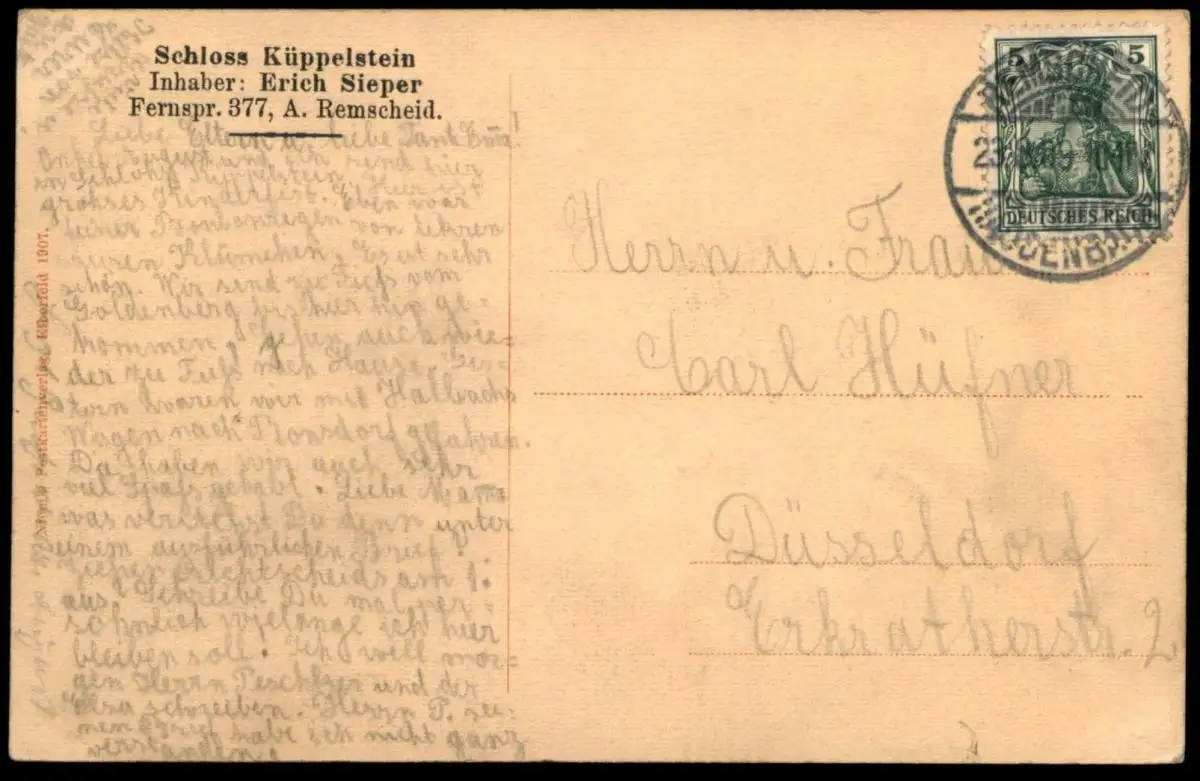 Schloss Küppelstein
Inhaber: Erich Sieper
Fernspr. 377, A. Remscheid.
Liebe Eltern u. liebe Tante Emma!
Onkel August und ich sind hier
in Schloss Küppelstein. Hier ist
grosses Kinderfest. Eben war
Bonbonregen von
Klümchen. Es ist sehr
schön. Wir sind zu Fuß vom
Goldenberg bis hier hin ge-
kommen, gehen auch wie-
der zu Fuß nach Hause. Ges-
tern waren wir mit Halbachs
Wagen nach Ronsdorf gefahren.
Da haben wir auch sehr
viel Spaß gehabt. Liebe Mama
was verstehst Du denn unter
einem ausführlichen Brief?
aus? Schreibe Du mal per-
söhnlich wielange ich hier
bleiben soll. Ich will mor-
gen Herrn und der
Elsa schreiben. Herrn P. sei-
nen Brief habe ich nicht ganz
verstanden.
Postkartenverlag Elberfeld 1907.
5 5
DEUTSCHES REICH
Herrn u. Frau
Carl Hüfner
Düsseldorf
Erkratherstr. 2